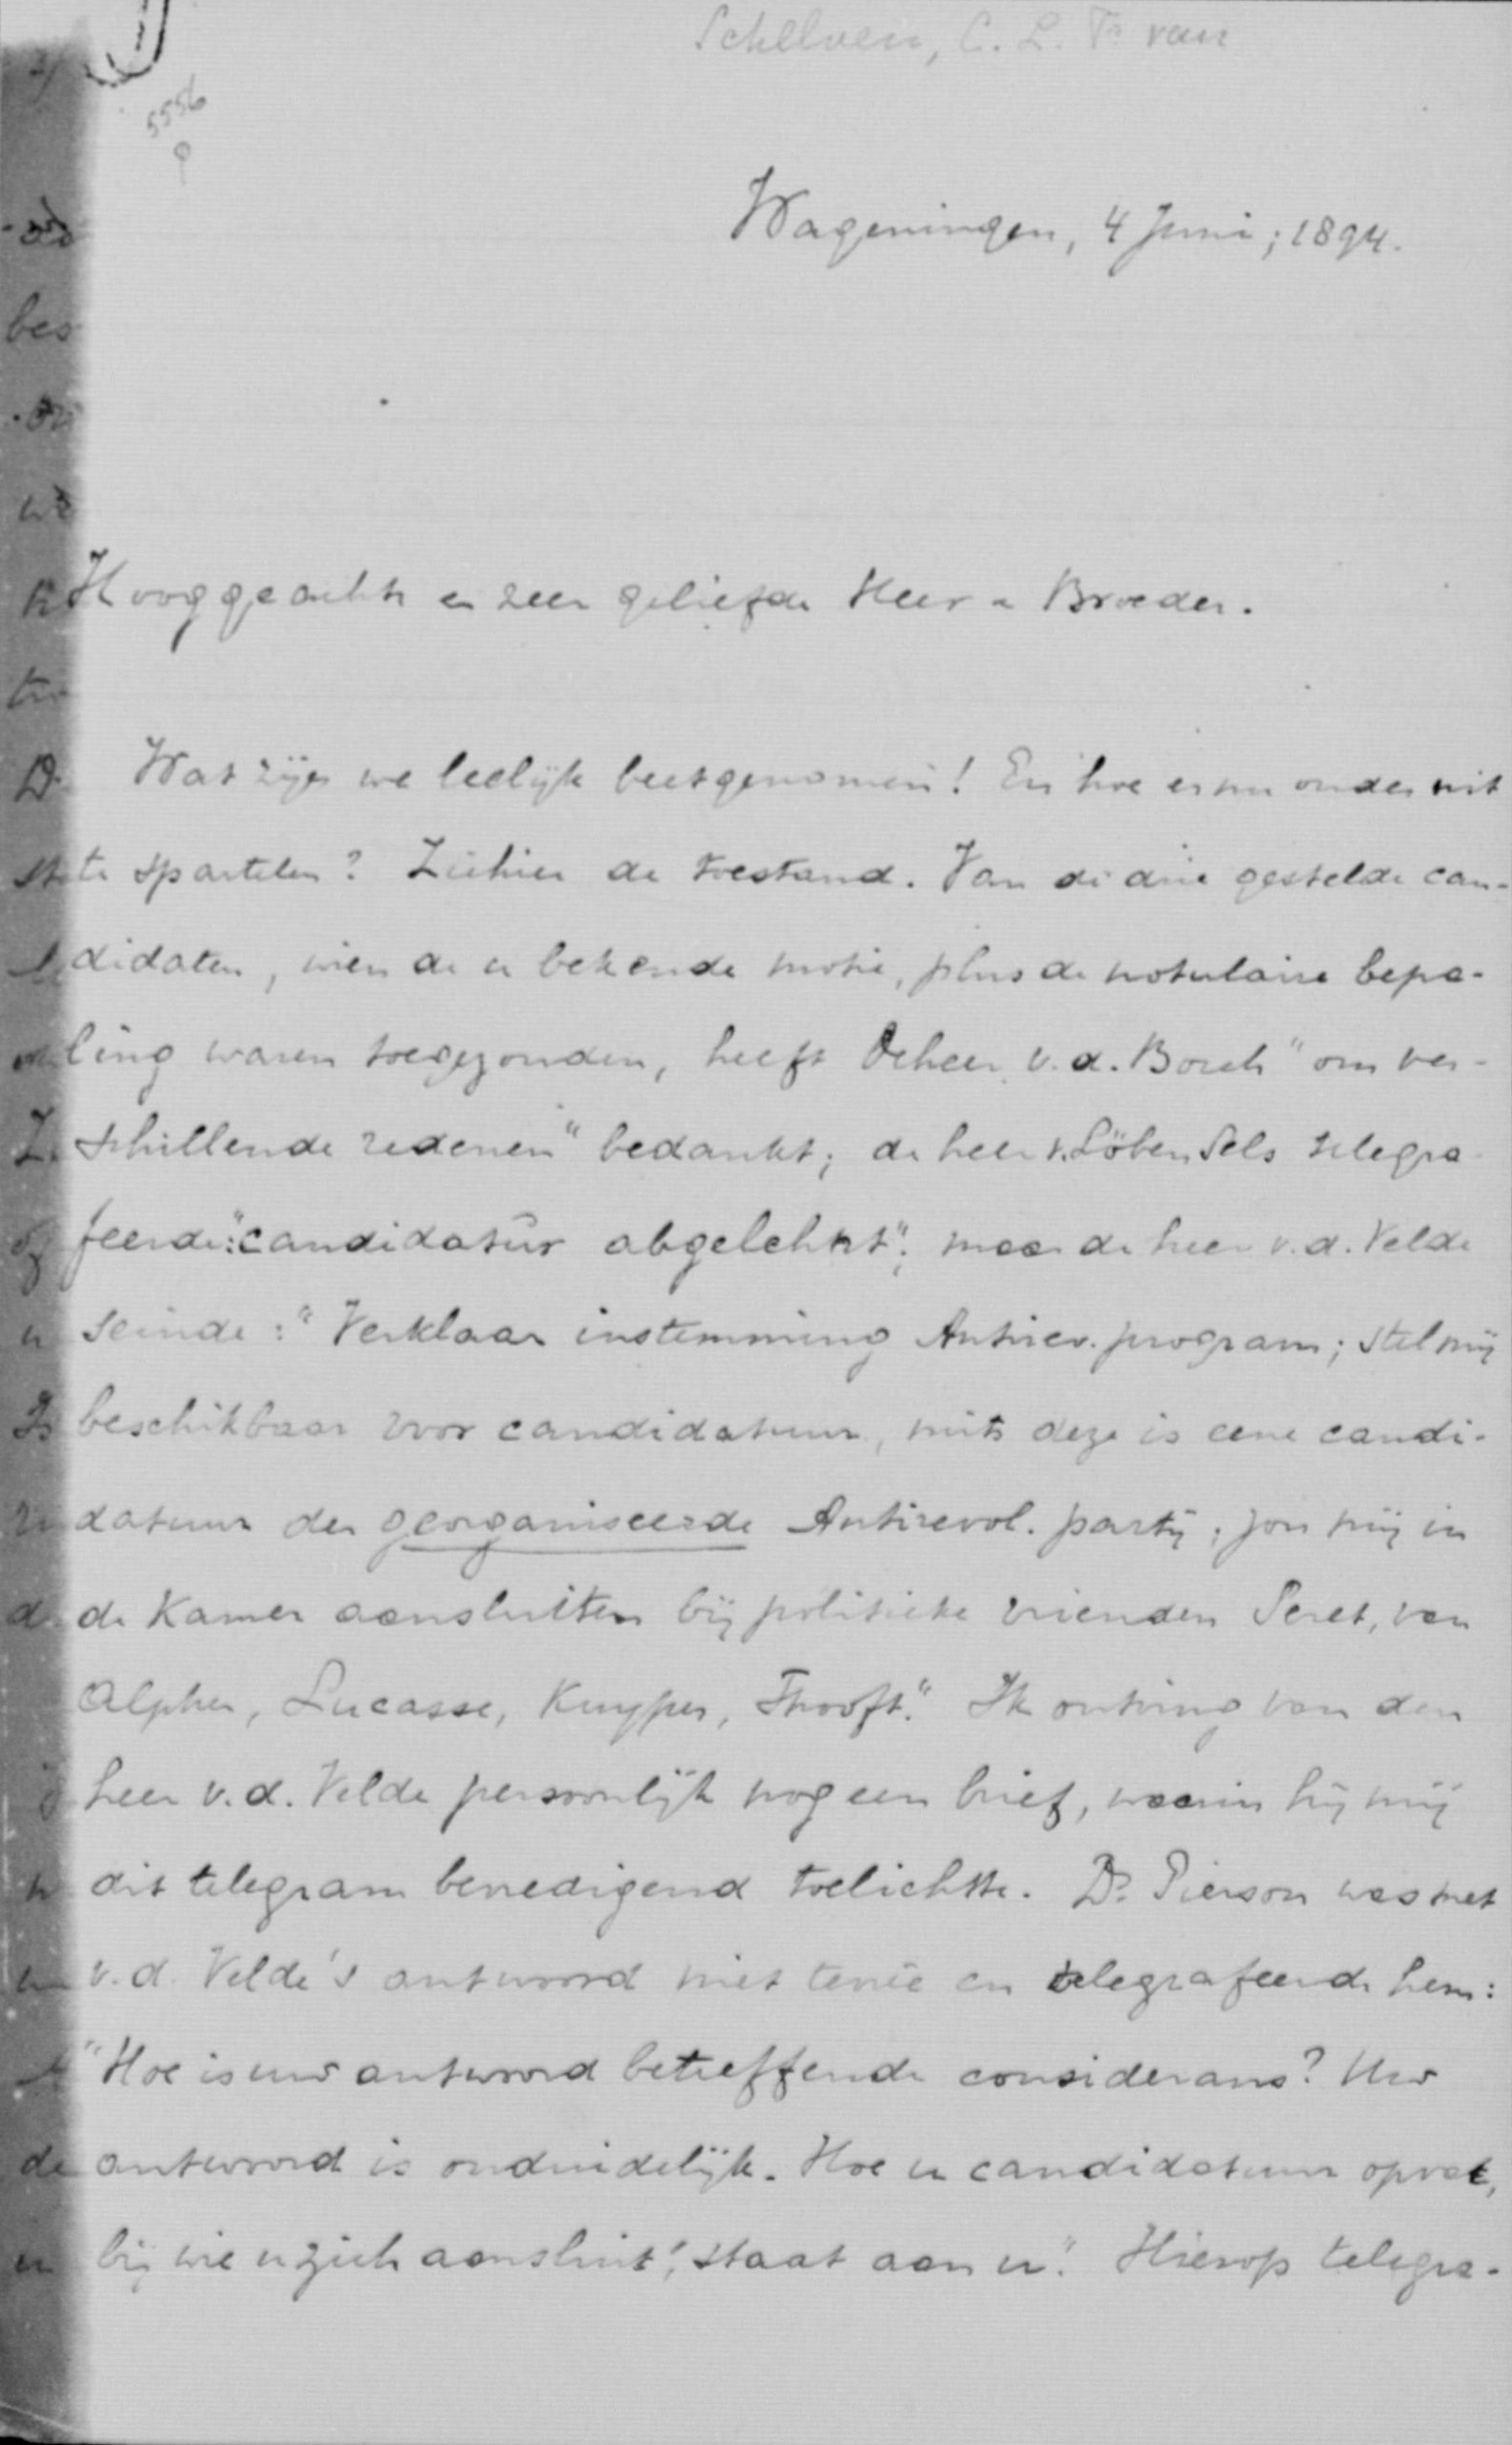 Schelven, C. L. Fr van
5556
Wageningen, 4 Juni, 1894.
Hooggeachte en zeer geliefde Heer en Broeder.
Wat zijn we leelijk beetgenomen! En hoe er nu onder uit
te spartelen? Ziehier de toestand. Van de drie gestelde can-
didaten, wien de u bekende motie, plus de notulaire bepa-
ling waren toegezonden, heeft de heer v.d. Borch "om ver-
schillende redenen" bedankt; de heer v. Löben Sels telegra-
feerde: "candidatûr abgelehnt"; maar de heer v.d. Velde
seinde: "Verklaar instemming Antirev. program; stel mij
beschikbaar voor candidatuur, mits deze is eene candi-
datuur der georganiseerde Antirevol. partij; zou mij in
de Kamer aansluiten bij politieke vrienden Seret, van
Alphen, Lucasse, Kuyper, Thooft." Ik ontving van den
heer v.d. Velde persoonlijk nog een brief, waarin hij mij
dit telegram bevredigend toelichtte. Ds. Pierson was met
v.d. Velde's antwoord niet tevrê en telegrafeerde hem:
"Hoe is uw antwoord betreffende considerans? Uw
antwoord is onduidelijk. Hoe u candidatuur opvat,
bij wie u zich aansluit, staat aan u." Hierop telegra-